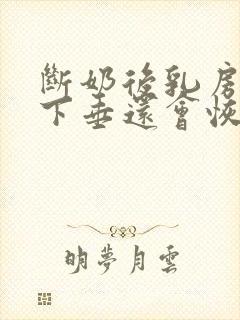 斷奶後乳房
下垂還會恢
明夢月雲